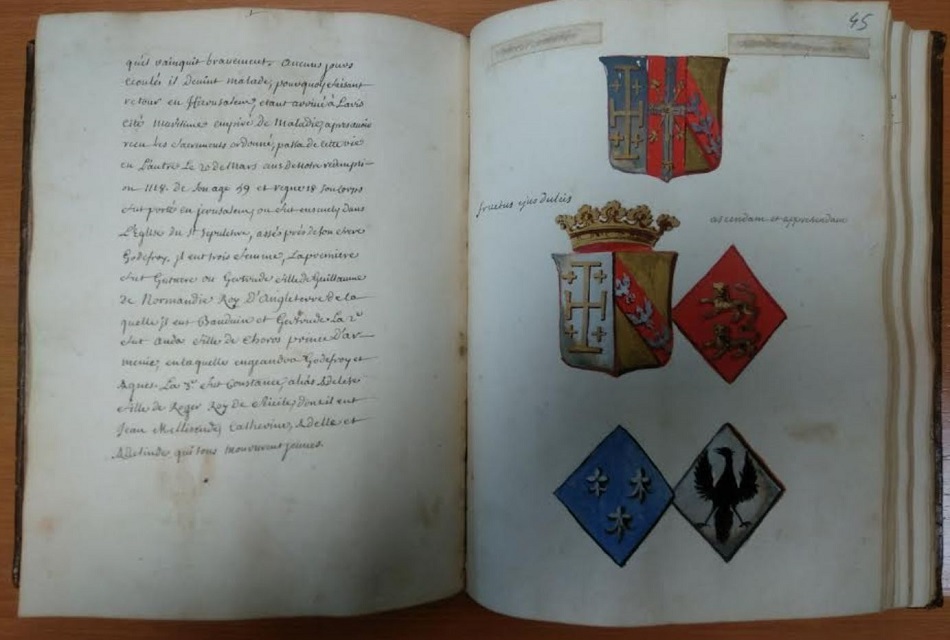 qu'il vainquit bravement. Aucuns jours
ecoulés il Devint malade, pourquoy faisant
retour en Hierusalem, etant arrivé à Laris
cité maritime empiré de Maladie, apres avoir
receu les Sacrements ordonné, passa de cette vie
en L'autre Le 20 de Mars ans de Notre redempti-
on 1118. de son age 59 et regne 18 son corps
fut porté en jerusalem, ou fut ensevely dans
L'Eglise du St Sepulchre, assés prés de son frere
Godefroy. il eut trois femmes, La premiere
fut ou Gertrude fille de Guillaume
de Normandie Roy D'Angleterre de la
quelle il eut Bauduin et Gertrude La 2e
fut Anda fille de Choros prince D'ar-
menie, en laquelle engendra Godefroy et
Agnes. La 3e fut Constance, alias Adelise
fille de Roger Roy de Sicile, dont il eut
Jean Mellisende, Catherine, Adelle et
Adelinde qui tous moururent jeunes.
45
fructus ejus dulcis
ascendam et apprehendam